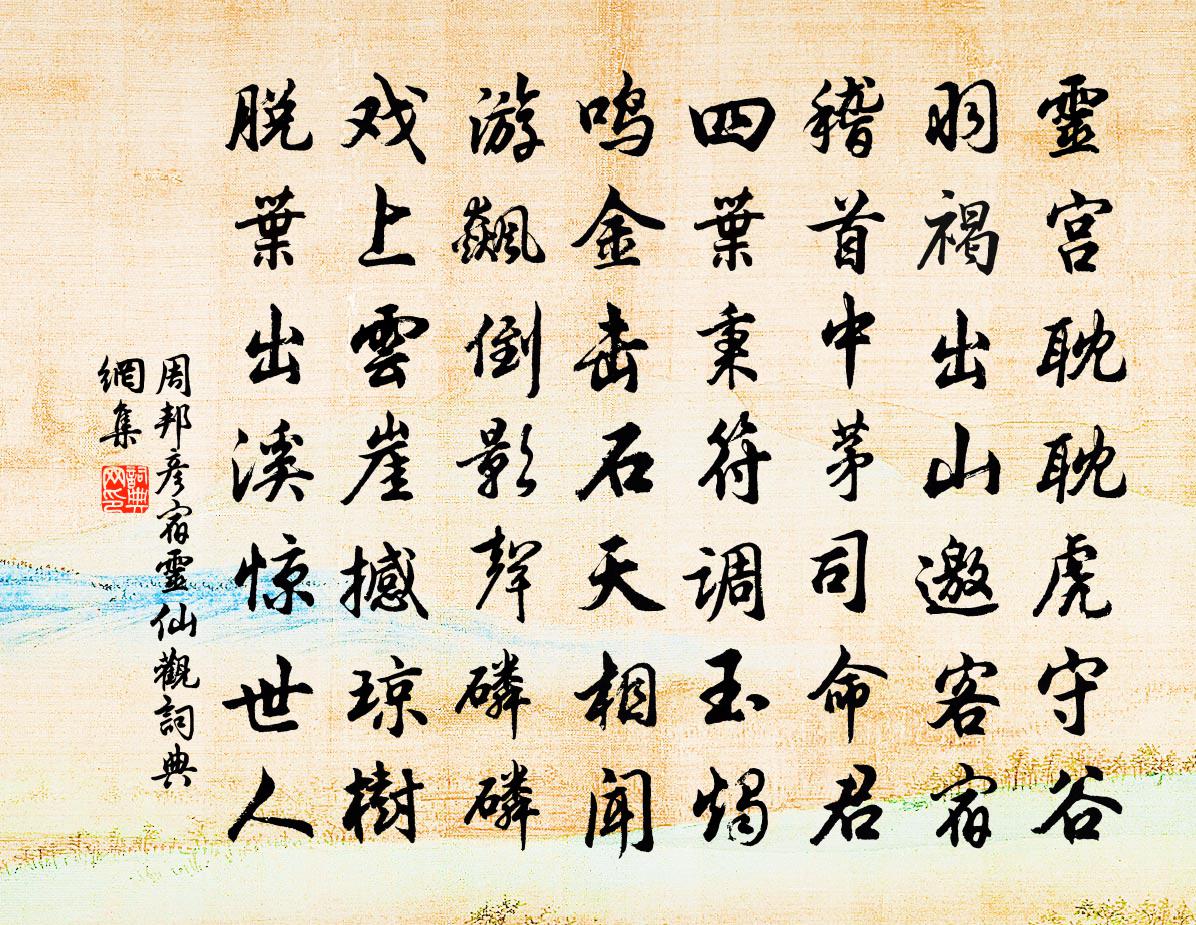 靈宫耽耽虎守谷
羽褐出山邀客宿
稽首中茅司命君
四葉秉符调玉燭
鸣金击石天相闻
游飆倒影聲磷磷
戏上雲崖撼琼樹
脱葉出溪惊世人
周邦彦宿靈仙觀詞典
網集
詞典
网印